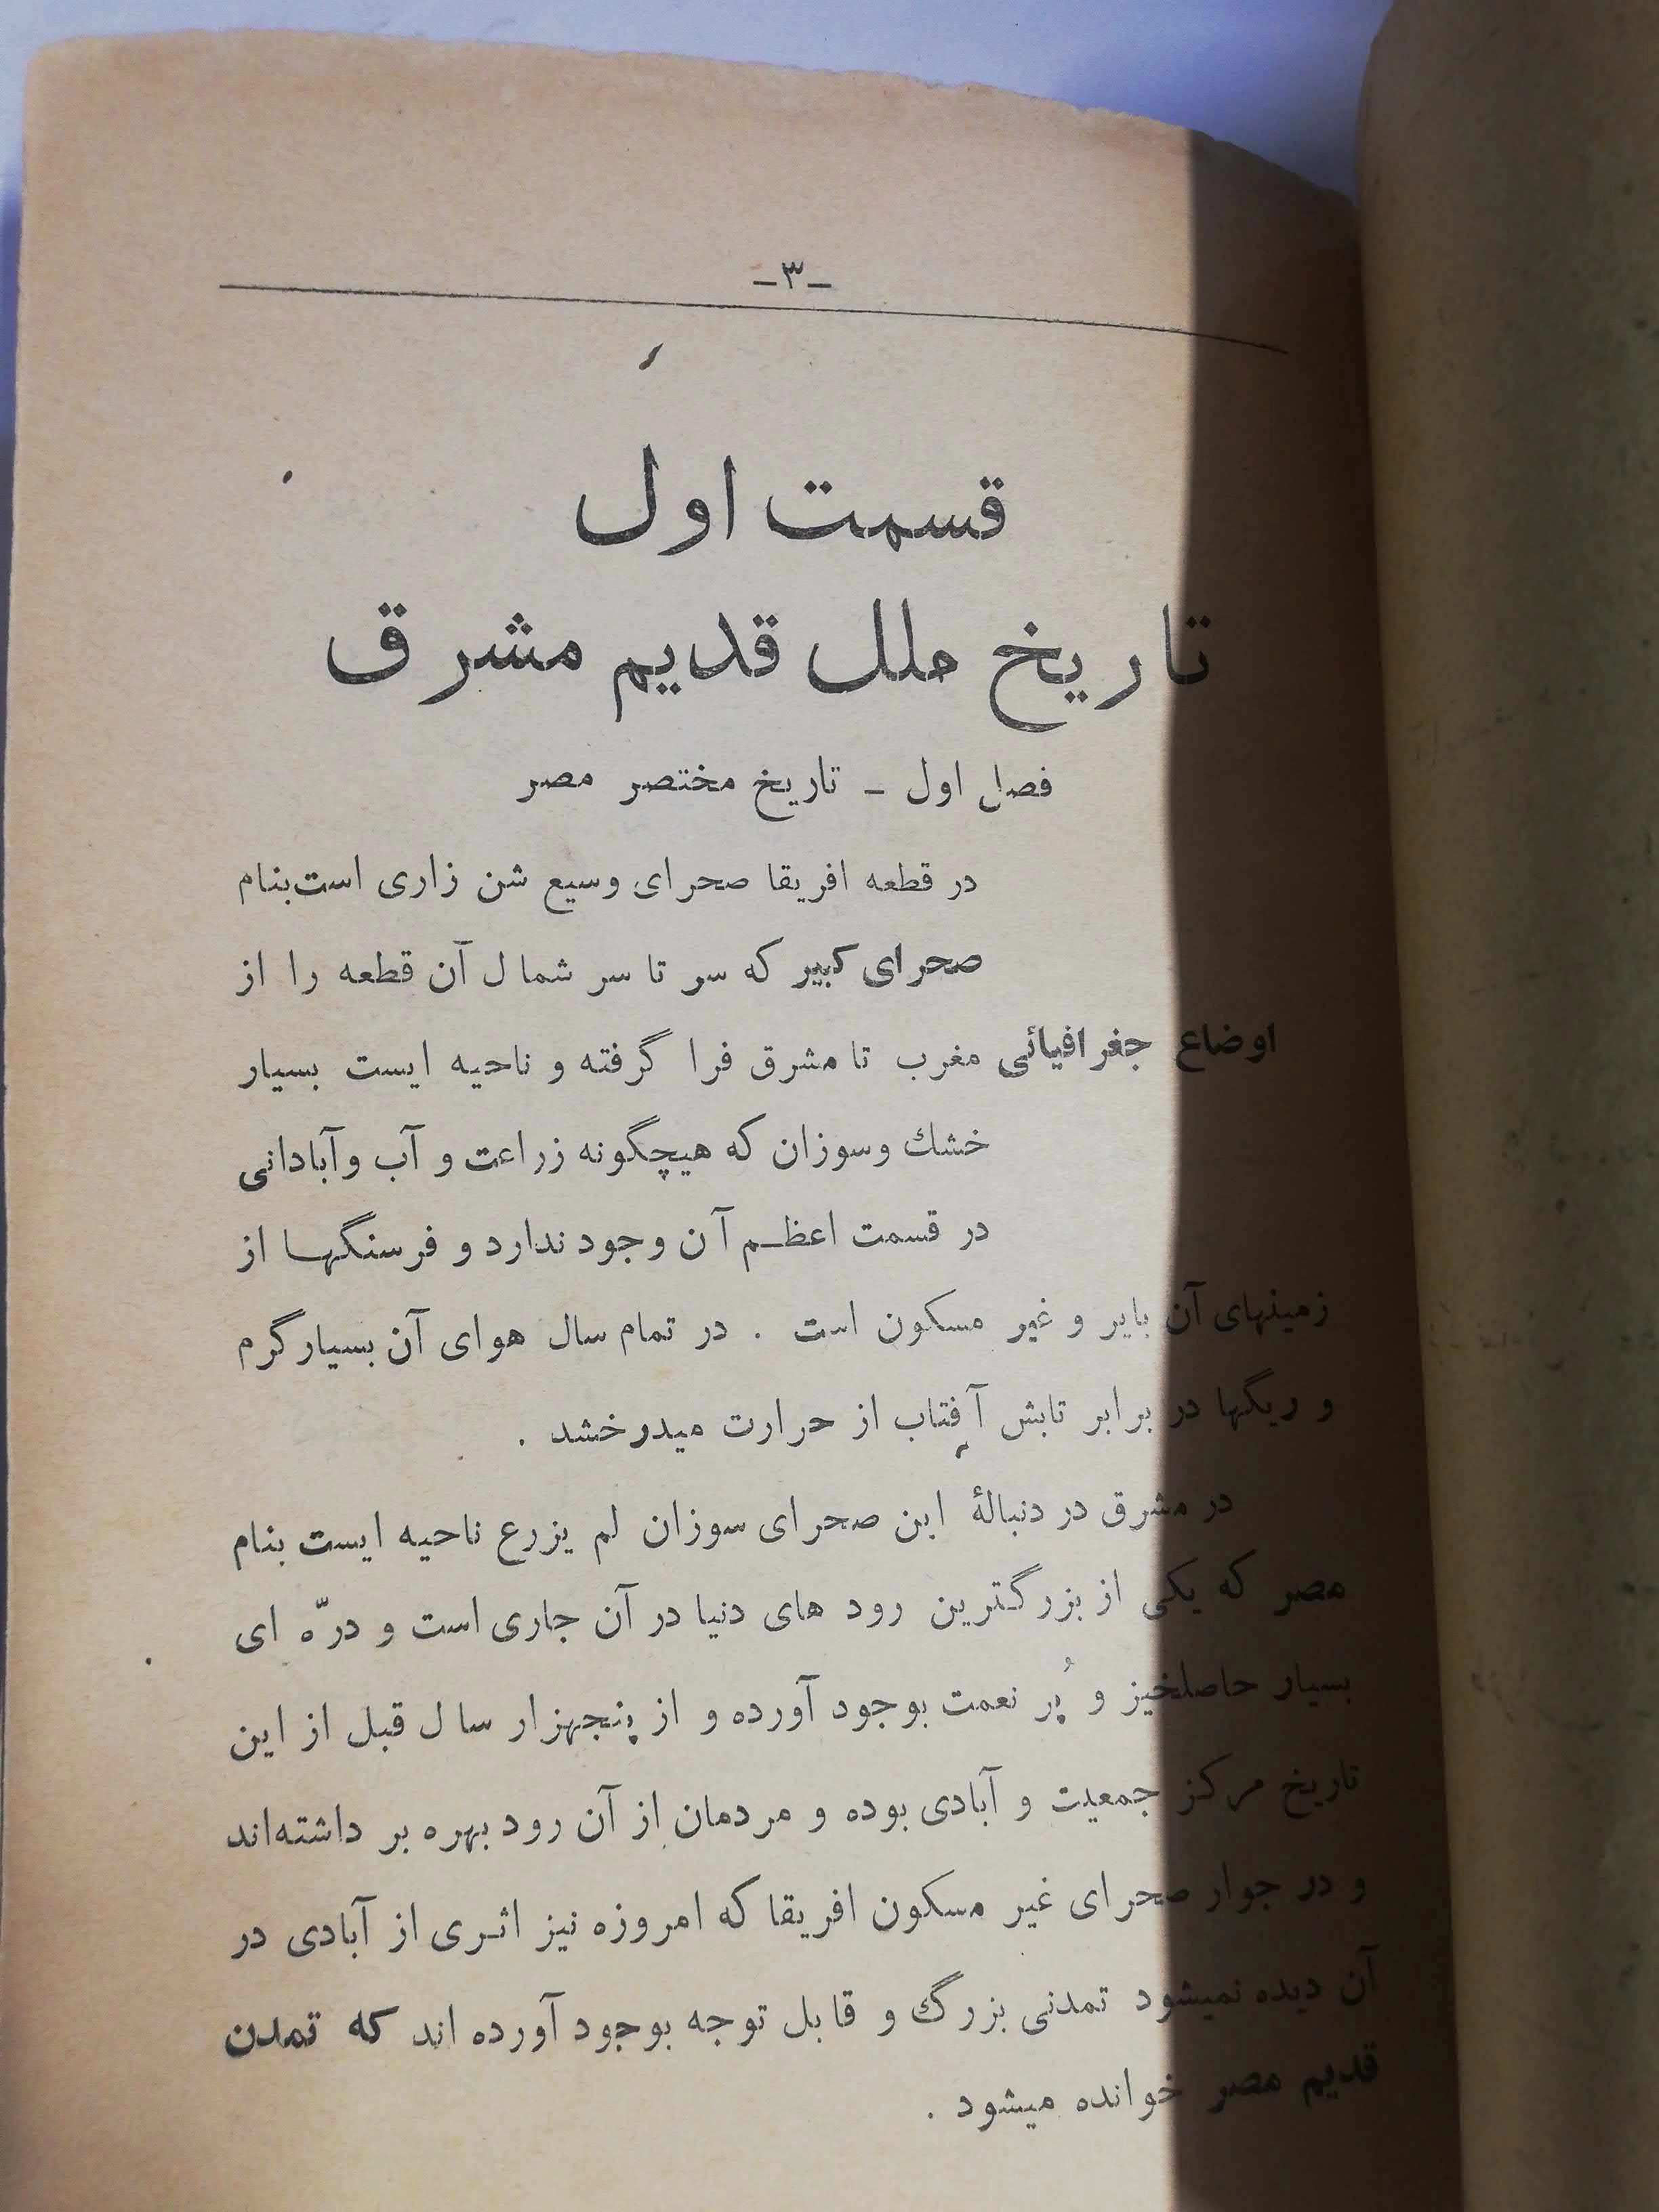 -۳-
قسمت اول
تاریخ ملل قدیم مشرق
فصل اول - تاریخ مختصر مصر
در قطعه افریقا صحرای وسیع شن زاری است بنام
صحرای کبیر که سر تا سر شمال آن قطعه را از
اوضاع جغرافیائی مغرب تا مشرق فرا گرفته و ناحیه ایست بسیار
خشك وسوزان که هیچگونه زراعت و آب وآبادانی
در قسمت اعظم آن وجود ندارد و فرسنگها از
زمینهای آن بایر و غیر مسکون است . در تمام سال هوای آن بسیار گرم
و ریگها در برابر تابش آفتاب از حرارت میدرخشد .
در مشرق در دنبالۀ این صحرای سوزان لم یزرع ناحیه ایست بنام
مصر که یکی از بزرگترین رود های دنیا در آن جاری است و درّه ای
بسیار حاصلخیز و پُر نعمت بوجود آورده و از پنجهزار سال قبل از این
تاریخ مرکز جمعیت و آبادی بوده و مردمان از آن رود بهره بر داشته‌اند
و در جوار صحرای غیر مسکون افریقا که امروزه نیز اثری از آبادی در
آن دیده نمیشود تمدنی بزرگ و قابل توجه بوجود آورده اند که تمدن
قدیم مصر خوانده میشود .